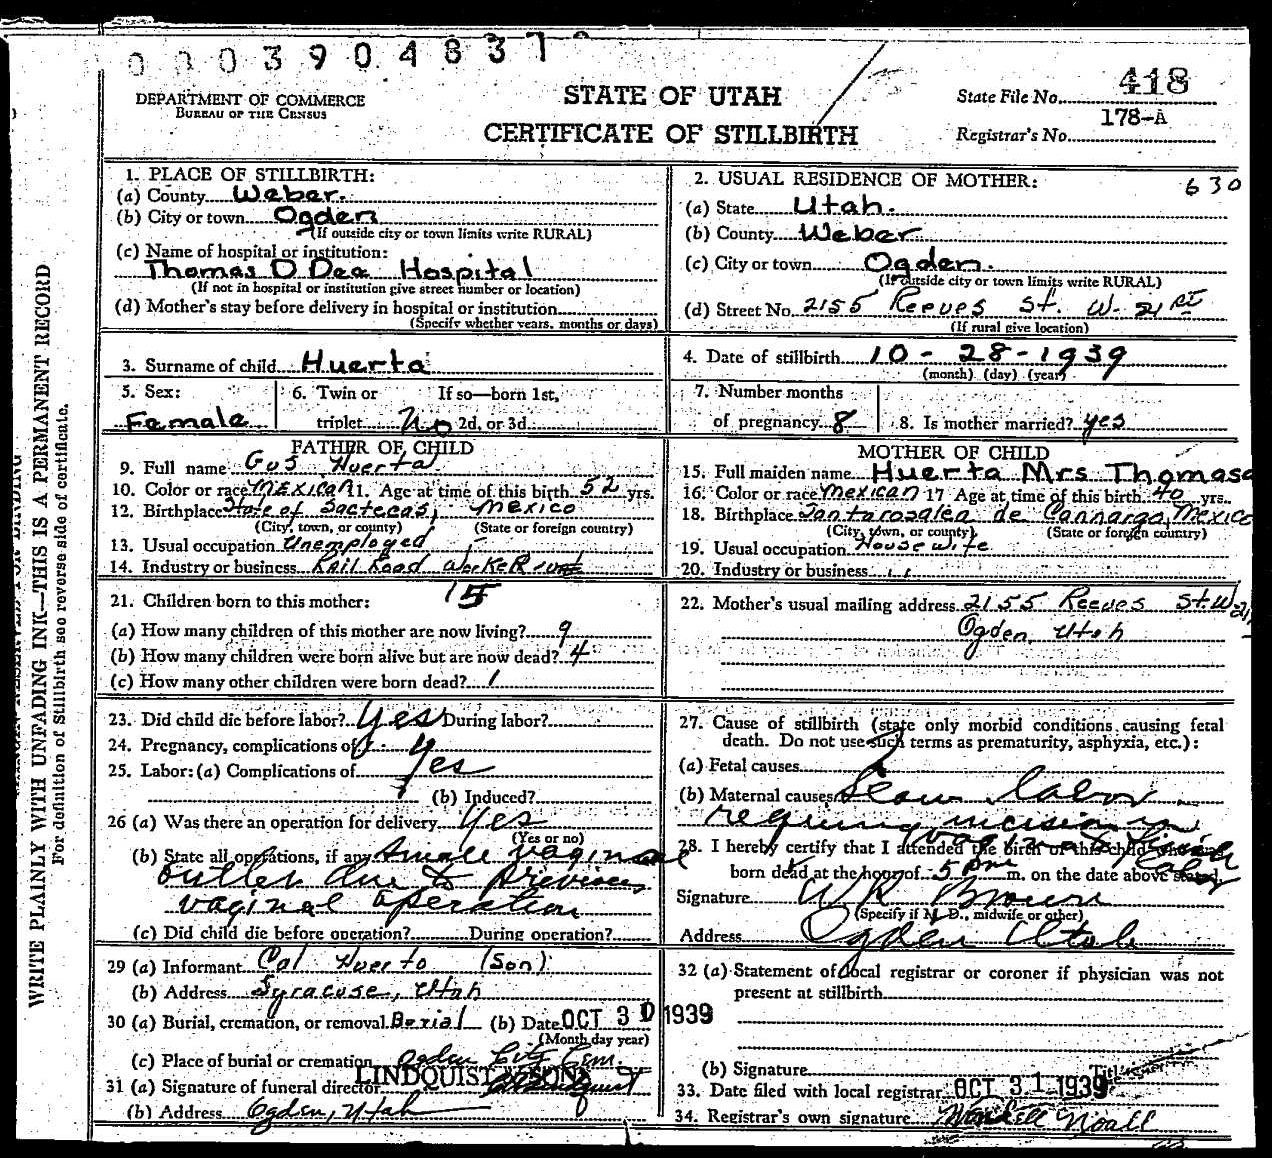 0003904837
DEPARTMENT OF COMMERCE
BUREAU OF THE CENSUS
STATE OF UTAH
CERTIFICATE OF STILLBIRTH
State File No. 418
Registrar's No. 178-A
WRITE PLAINLY WITH UNFADING INK—THIS IS A PERMANENT RECORD
For definition of Stillbirth see reverse side of certificate.
1. PLACE OF STILLBIRTH:
(a) County Weber.
(b) City or town Ogden
(If outside city or town limits write RURAL)
(c) Name of hospital or institution:
Thomas D Dee Hospital
(If not in hospital or institution give street number or location)
(d) Mother's stay before delivery in hospital or institution
(Specify whether years, months or days)
2. USUAL RESIDENCE OF MOTHER: 630
(a) State Utah.
(b) County Weber
(c) City or town Ogden.
(If outside city or town limits write RURAL)
(d) Street No. 2155 Reeves St. W. 21
(If rural give location)
3. Surname of child Huerta
4. Date of stillbirth 10-28-1939
(month) (day) (year)
5. Sex: Female
6. Twin or If so—born 1st,
triplet No 2d, or 3d
7. Number months
of pregnancy 8
8. Is mother married? yes
FATHER OF CHILD
9. Full name Gus Huerta
10. Color or race Mexican 11. Age at time of this birth 52 yrs.
12. Birthplace State of Sactecas, Mexico
(City, town, or county) (State or foreign country)
13. Usual occupation Unemployed
14. Industry or business Rail Road worker
MOTHER OF CHILD
15. Full maiden name Huerta Mrs Thomasa
16. Color or race Mexican 17 Age at time of this birth 40 yrs.
18. Birthplace Santarosalea de Cannargo, Mexico
(City, town, or county) (State or foreign country)
19. Usual occupation House wife
20. Industry or business
21. Children born to this mother: 15
(a) How many children of this mother are now living? 9
(b) How many children were born alive but are now dead? 4
(c) How many other children were born dead? 1
22. Mother's usual mailing address 2155 Reeves St W. 21
Ogden, Utah
23. Did child die before labor? Yes During labor?
24. Pregnancy, complications of
25. Labor: (a) Complications of Yes
(b) Induced?
26 (a) Was there an operation for delivery Yes
(Yes or no)
(b) State all operations, if any Small vaginal
due to previous
vaginal operation
(c) Did child die before operation? During operation?
27. Cause of stillbirth (state only morbid conditions causing fetal
death. Do not use such terms as prematurity, asphyxia, etc.):
(a) Fetal causes
(b) Maternal causes Slow labor
requiring incision in
28. I hereby certify that I attended the birth of this child who was
born dead at the hour of 5 pm m. on the date above stated.
Signature WR Brown
(Specify if M. D., midwife or other)
Address Ogden Utah
29 (a) Informant Cal Huerto (Son)
(b) Address Syracuse, Utah
30 (a) Burial, cremation, or removal Berial (b) Date OCT 30 1939
(Month day year)
(c) Place of burial or cremation Ogden City Cem.
LINDQUIST & SONS
31 (a) Signature of funeral director
(b) Address Ogden, Utah
32 (a) Statement of local registrar or coroner if physician was not
present at stillbirth
(b) Signature Title
33. Date filed with local registrar OCT 31 1939
34. Registrar's own signature Wendell Noall